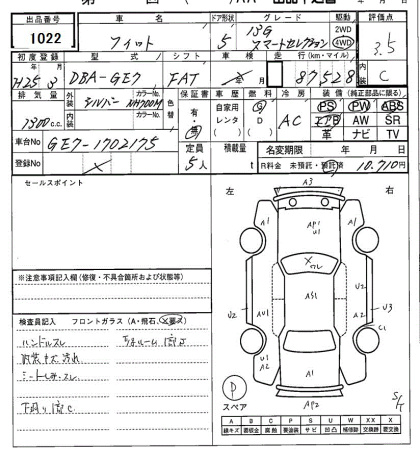 出品番号 車名 ドア形状 グレード 駆動 評価点
1022 フィット 5 13G スマートセレクション 2WD 4WD 3.5
初度登録 型式 シフト 車検 走行(km・マイル) 内装
H25年3月 DBA-GE7 FAT 年 月 87,528 C
排気量 外装 シルバー カラーNo. NH700M 色替 保証書 車歴 燃料 冷房 装備(純正部品に限る)
1300c.c. 内装 カラーNo. 有・無 自家用 レンタ G D AC PS PW ABS
エアB AW SR
革 ナビ TV
車台No GE7-1702175 定員 積載量 名変期限 年 月 日
登録No 5人 t R料金 未預託・預託済 10,710円
セールスポイント
左 右
※注意事項記入欄(修復・不具合箇所および状態等)
検査員記入 フロントガラス(A・飛石、X要X)
ハンドルスレ
内装キズ汚れ
シートしみ・スレ
A3
A1 AP1 U1 A1
X
AS1
U2 AU1 U2 U3
C1
U1 A2 A2
A1
AP2
P
スペア
S/T
A B C P S U W XX X
線キズ 要板金 腐蝕 要塗装 サビ 凹凸 補修跡 交換跡 要交換